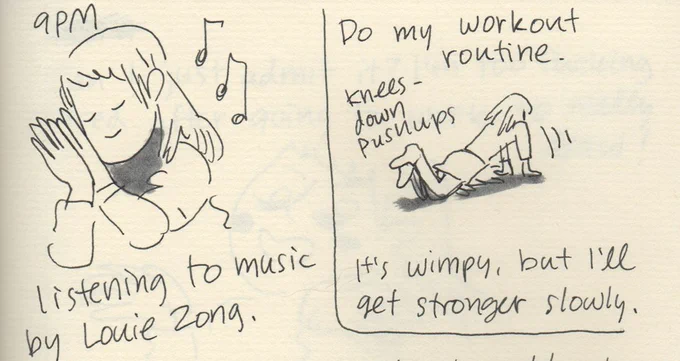 9PM
listening to music
by Louie Zong.
Do my workout
routine.
knees-
down
pushups
It's wimpy, but I'll
get stronger slowly.